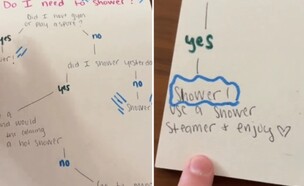 Do I need to shower?
Did I have gym
or play a sport?
yes
no
did I shower yesterday
yes
no
a
and would
a hot shower
no
yes
Shower!
use a shower
steamer + enjoy ♡